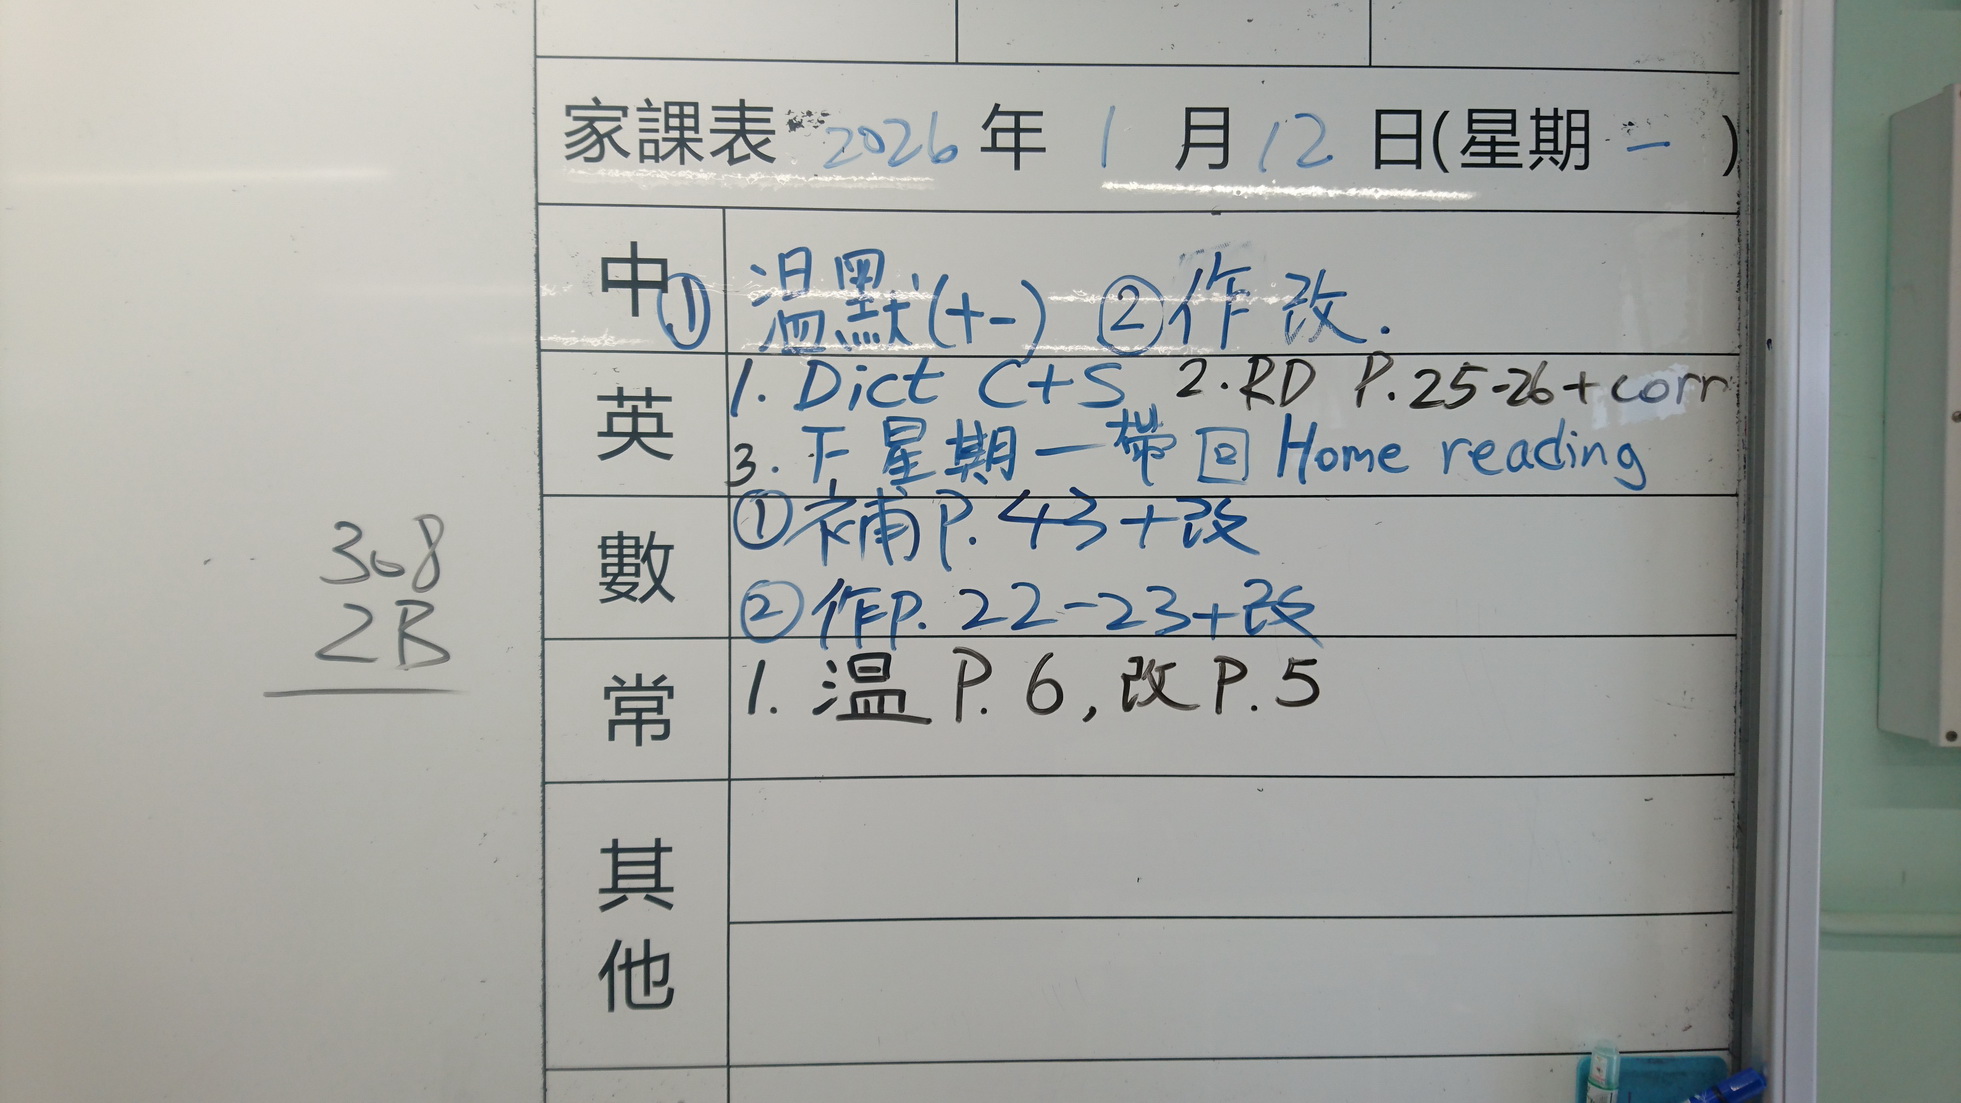 家課表 2026 年 1 月 12 日(星期 一 )
中 ① 温默(十一) ② 作改.
英 1. Dict C+S 2. RD P.25-26+corr
3. 下星期一帶回 Home reading
數 ① 補P.43+改
② 作P.22-23+改
常 1. 温 P.6, 改 P.5
其他
308
2B